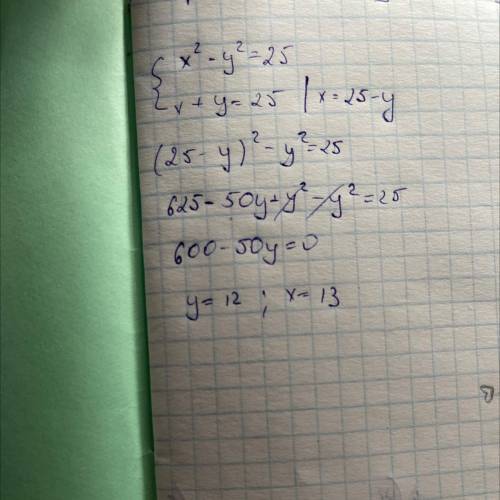 { x² - y² = 25
{ x + y = 25 | x = 25 - y
(25 - y)² - y² = 25
625 - 50y + y² - y² = 25
600 - 50y = 0
y = 12 ; x = 13